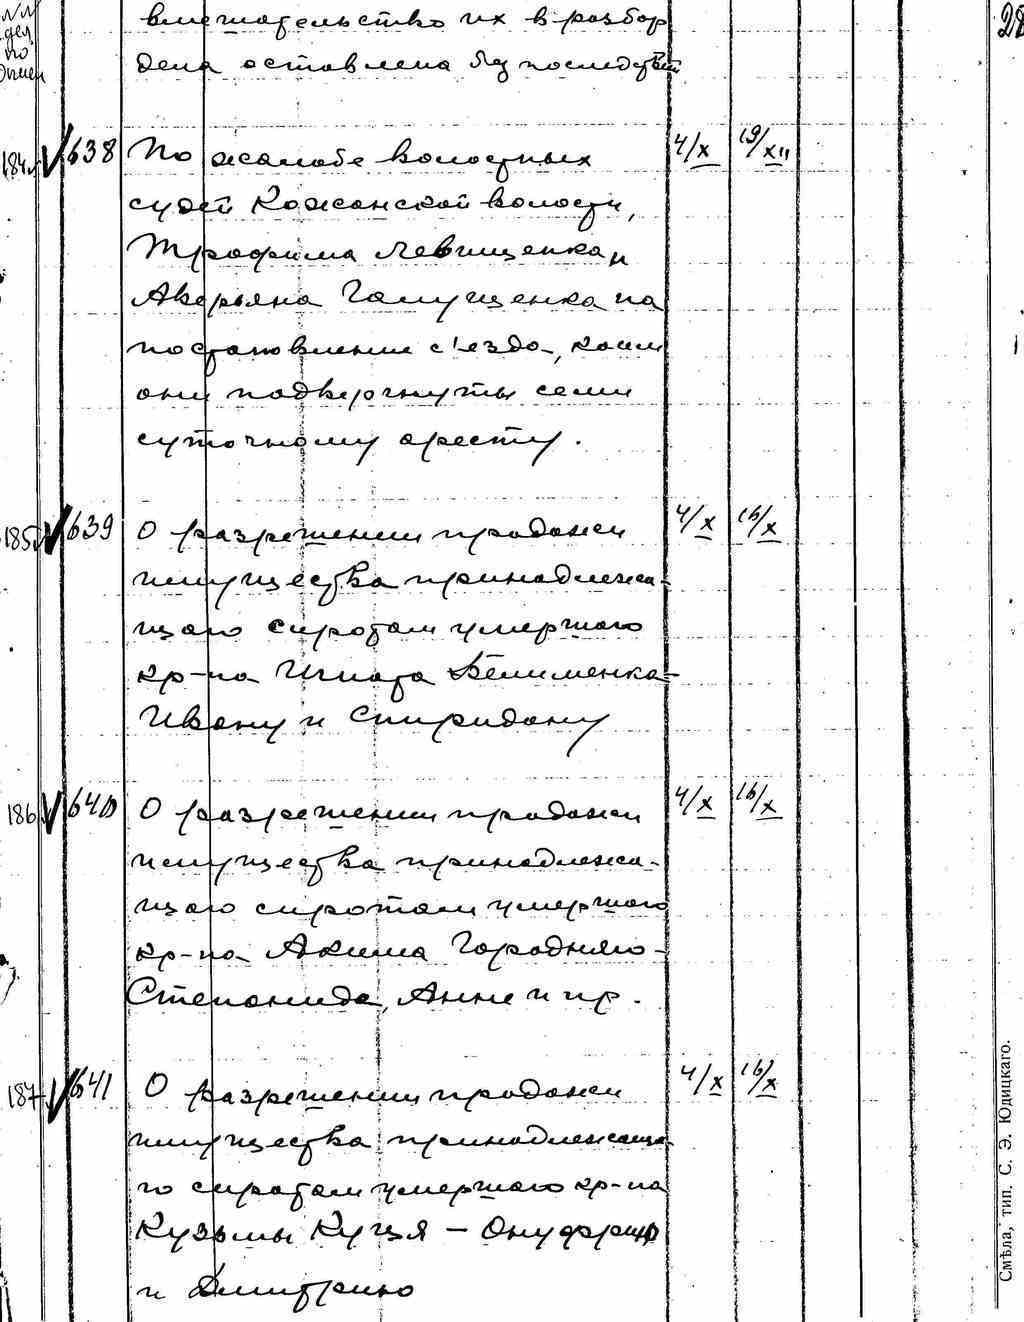 NN
дел
по
описи
28
вмешательство их в разбор
дела оставлена без последствий
184 638 По жалобе волостных 4/X 19/XII
судей Кожанской волости,
Трофима Левищенка и
Аверьяна Галущенка на
постановление с'езда, коим
они подвергнуты семи
суточному аресту.
185 639 О разрешении продажи 4/X 16/X
имущества принадлежа-
щаго сиротам умершаго
кр-на Игната Велименка-
Ивану и Спиридону
186 640 О разрешении продажи 4/X 16/X
имущества принадлежа-
щаго сиротам умершаго
кр-на Акима Городняго-
Степаниде, Анне и пр.
187 641 О разрешении продажи 4/X 16/X
имущества принадлежаща-
го сиротам умершаго кр-на
Кузьмы Куця - Онуфрию
и Дмитрию
Смѣла, тип. С. Э. Юдицкаго.